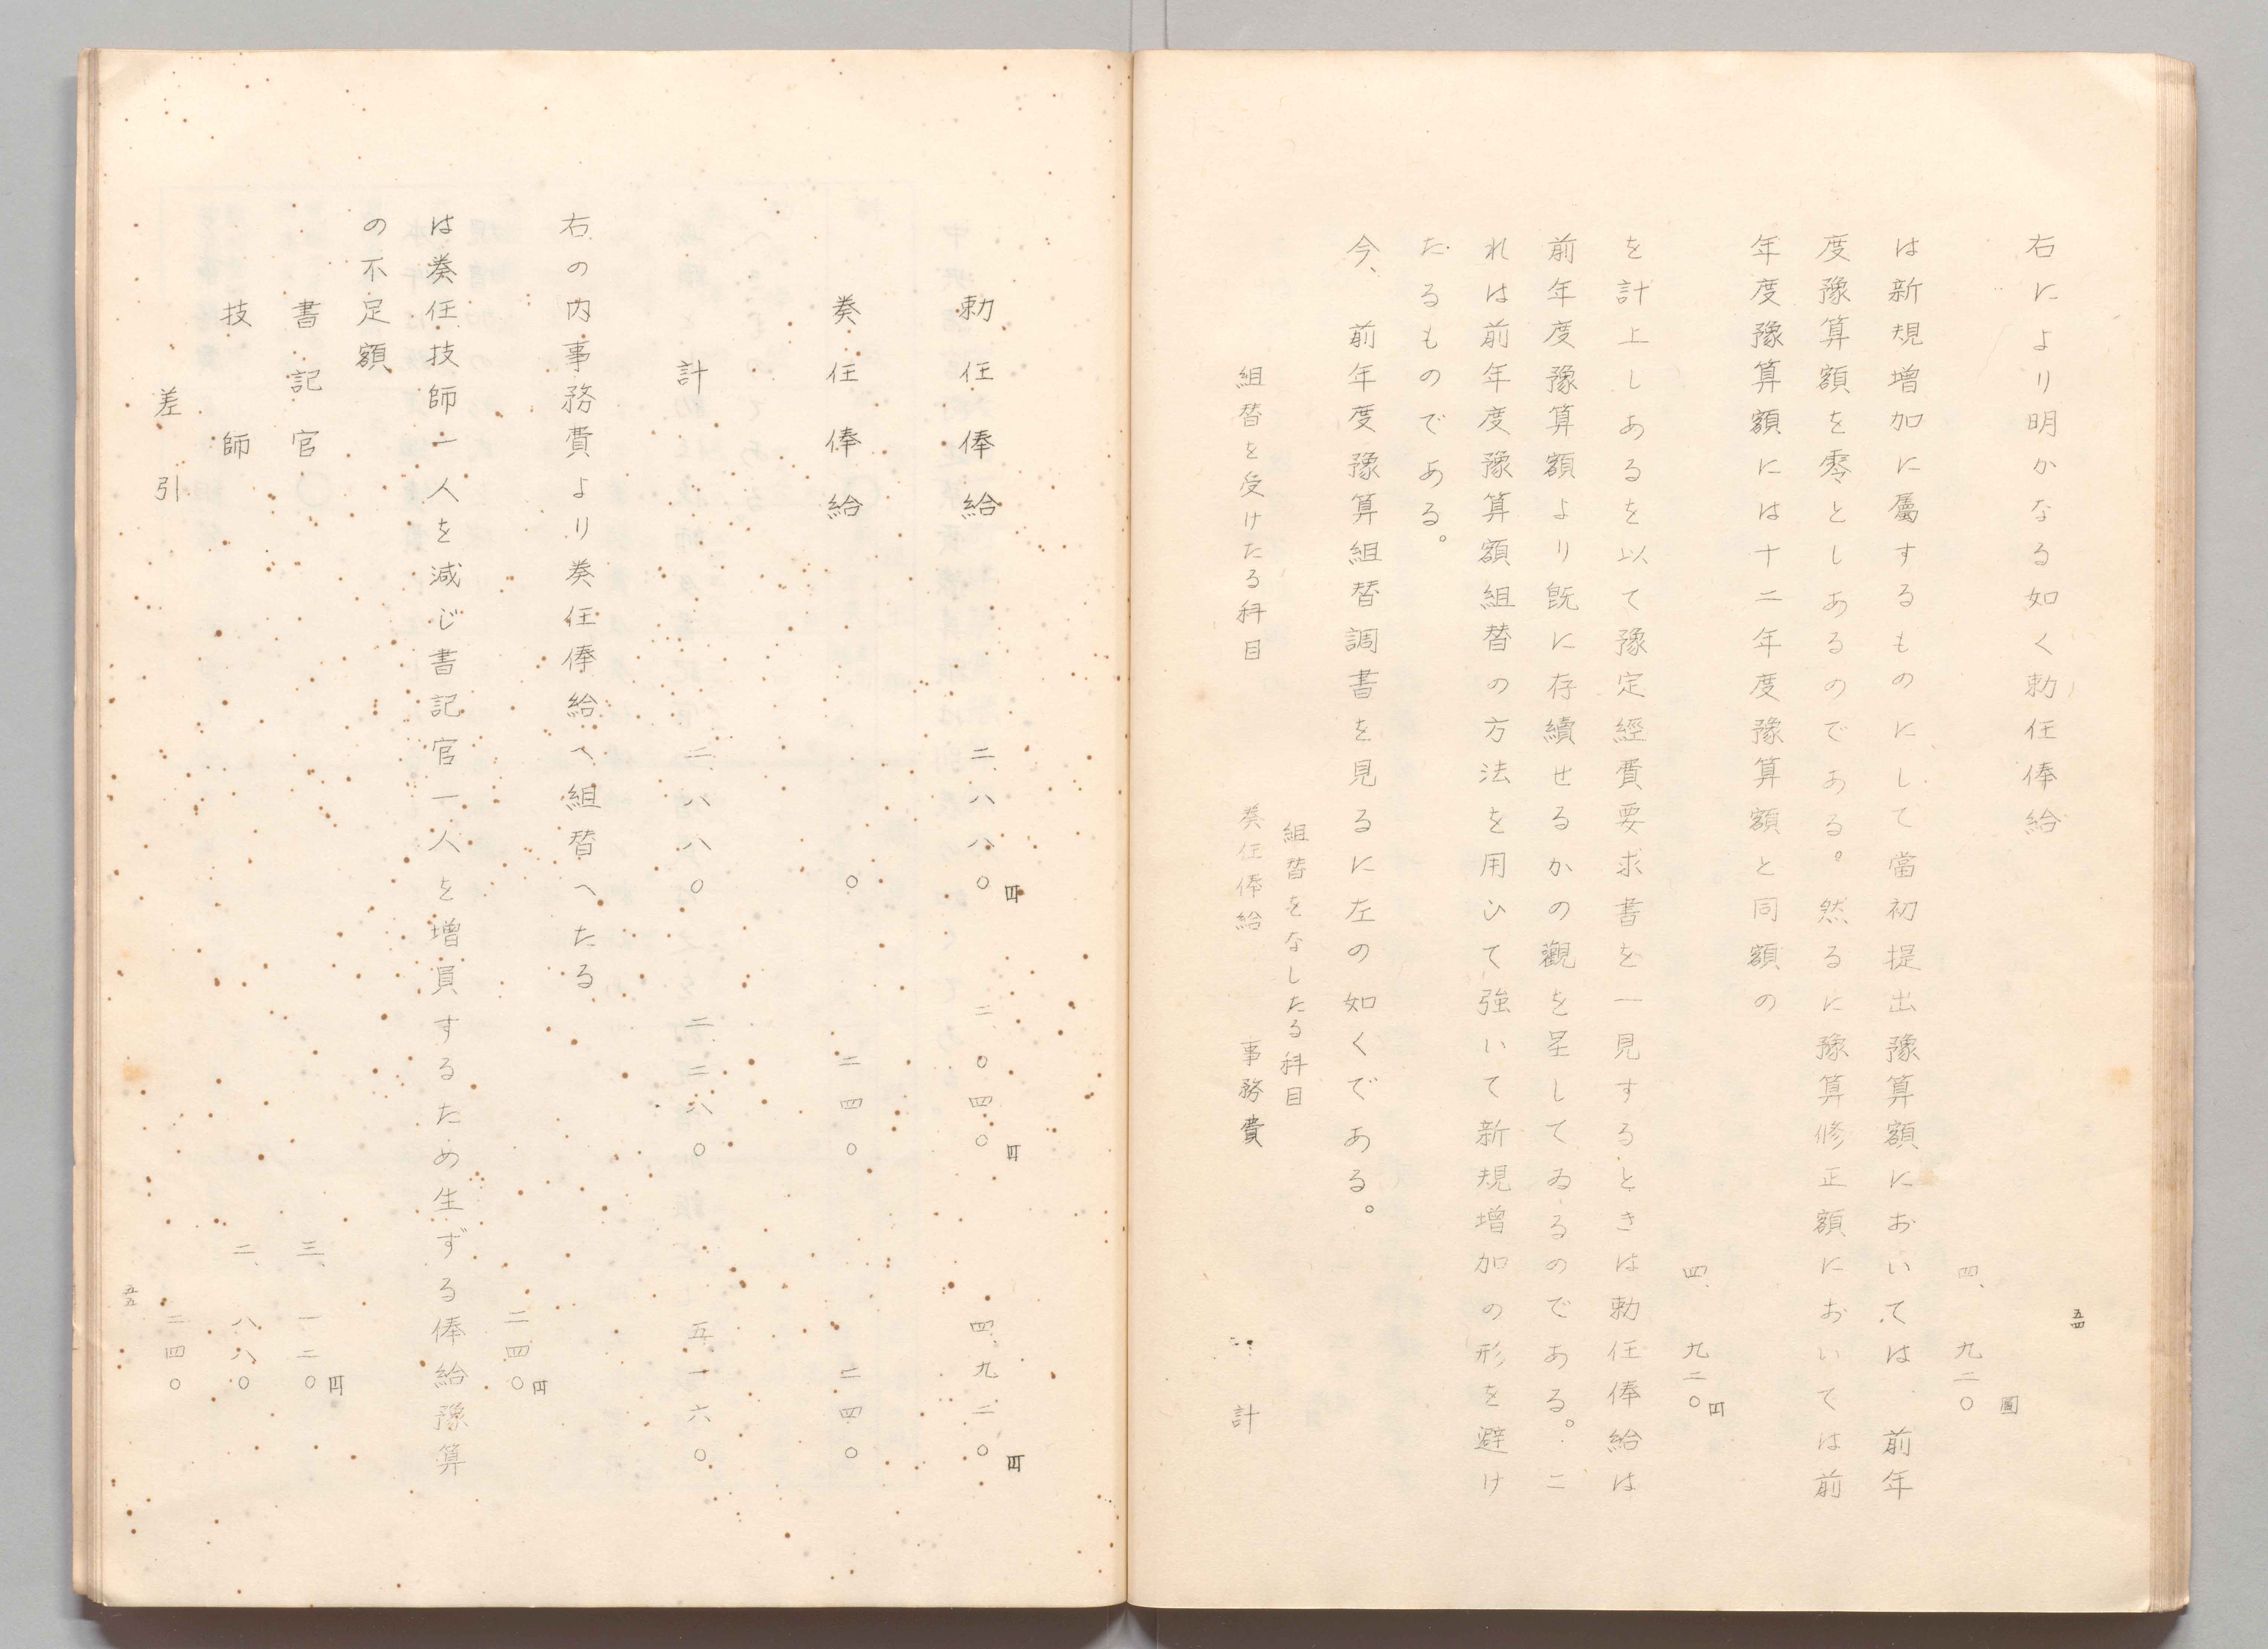 五四
右により明かなる如く勅任俸給
四、九二〇圓
は新規増加に屬するものにして當初提出豫算額においては、前年
度豫算額を零としあるのである。然るに豫算修正額においては前
年度豫算額には十二年度豫算額と同額の
四、九二〇円
を計上しあるを以て豫定經費要求書を一見するときは勅任俸給は
前年度豫算額より既に存續せるかの觀を呈してゐるのである。こ
れは前年度豫算額組替の方法を用ひて強いて新規増加の形を避け
たるものである。
今、前年度豫算組替調書を見るに左の如くである。
組替をなしたる科目
組替を受けたる科目 奏任俸給 事務費 計
勅任俸給 二、八八〇円 二、〇四〇円 四、九二〇円
奏任俸給 〇 二四〇 二四〇
計 二、八八〇 二、二八〇 五、一六〇
右の内事務費より奏任俸給へ組替へたる
二四〇円
は奏任技師一人を減じ書記官一人を増員するため生ずる俸給豫算
の不足額
書記官 三、一二〇円
技師 二、八八〇
差引 二四〇
五五